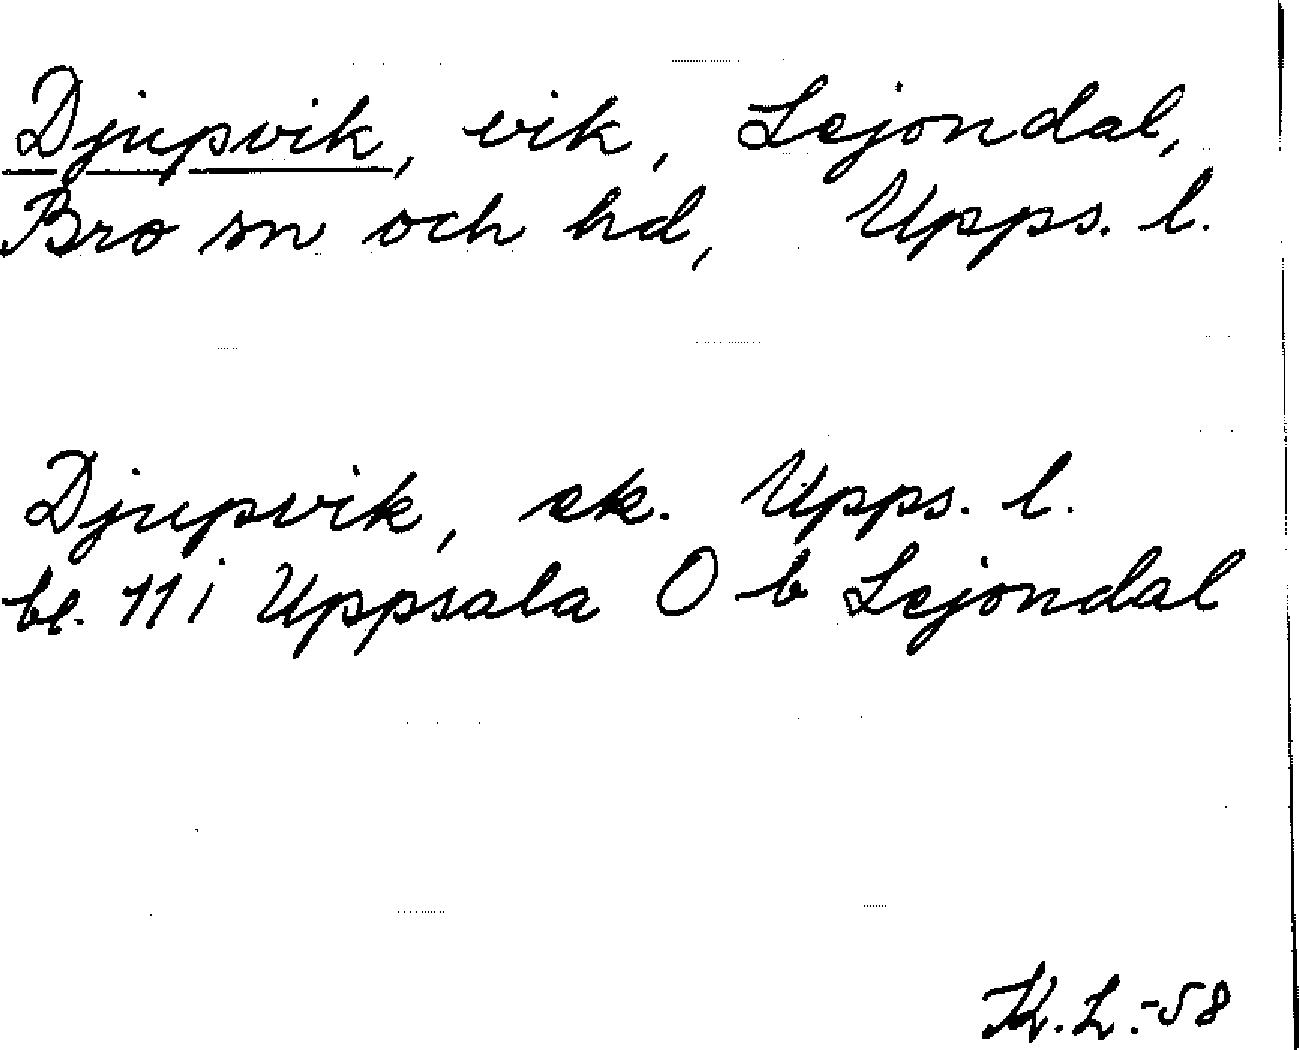 Djupvik, vik, Lejondal,
Bro sn och hd, Upps. l.
Djupvik, ek. Upps. l.
bl. 11 i Uppsala O b Lejondal
K. L. -58